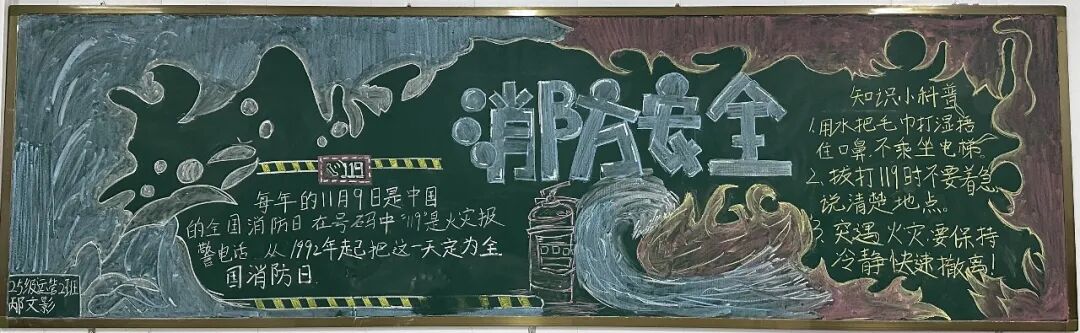 消防安全
119
每年的11月9日是中国
的全国消防日在号码中"119"是火灾报
警电话 从1992年起把这一天定为全
国消防日
知识小科普
1.用水把毛巾打湿捂
住口鼻,不乘坐电梯。
2.拨打119时不要着急
说清楚地点。
3.突遇火灾,要保持
冷静快速撤离!
25级运营2班
邴文影